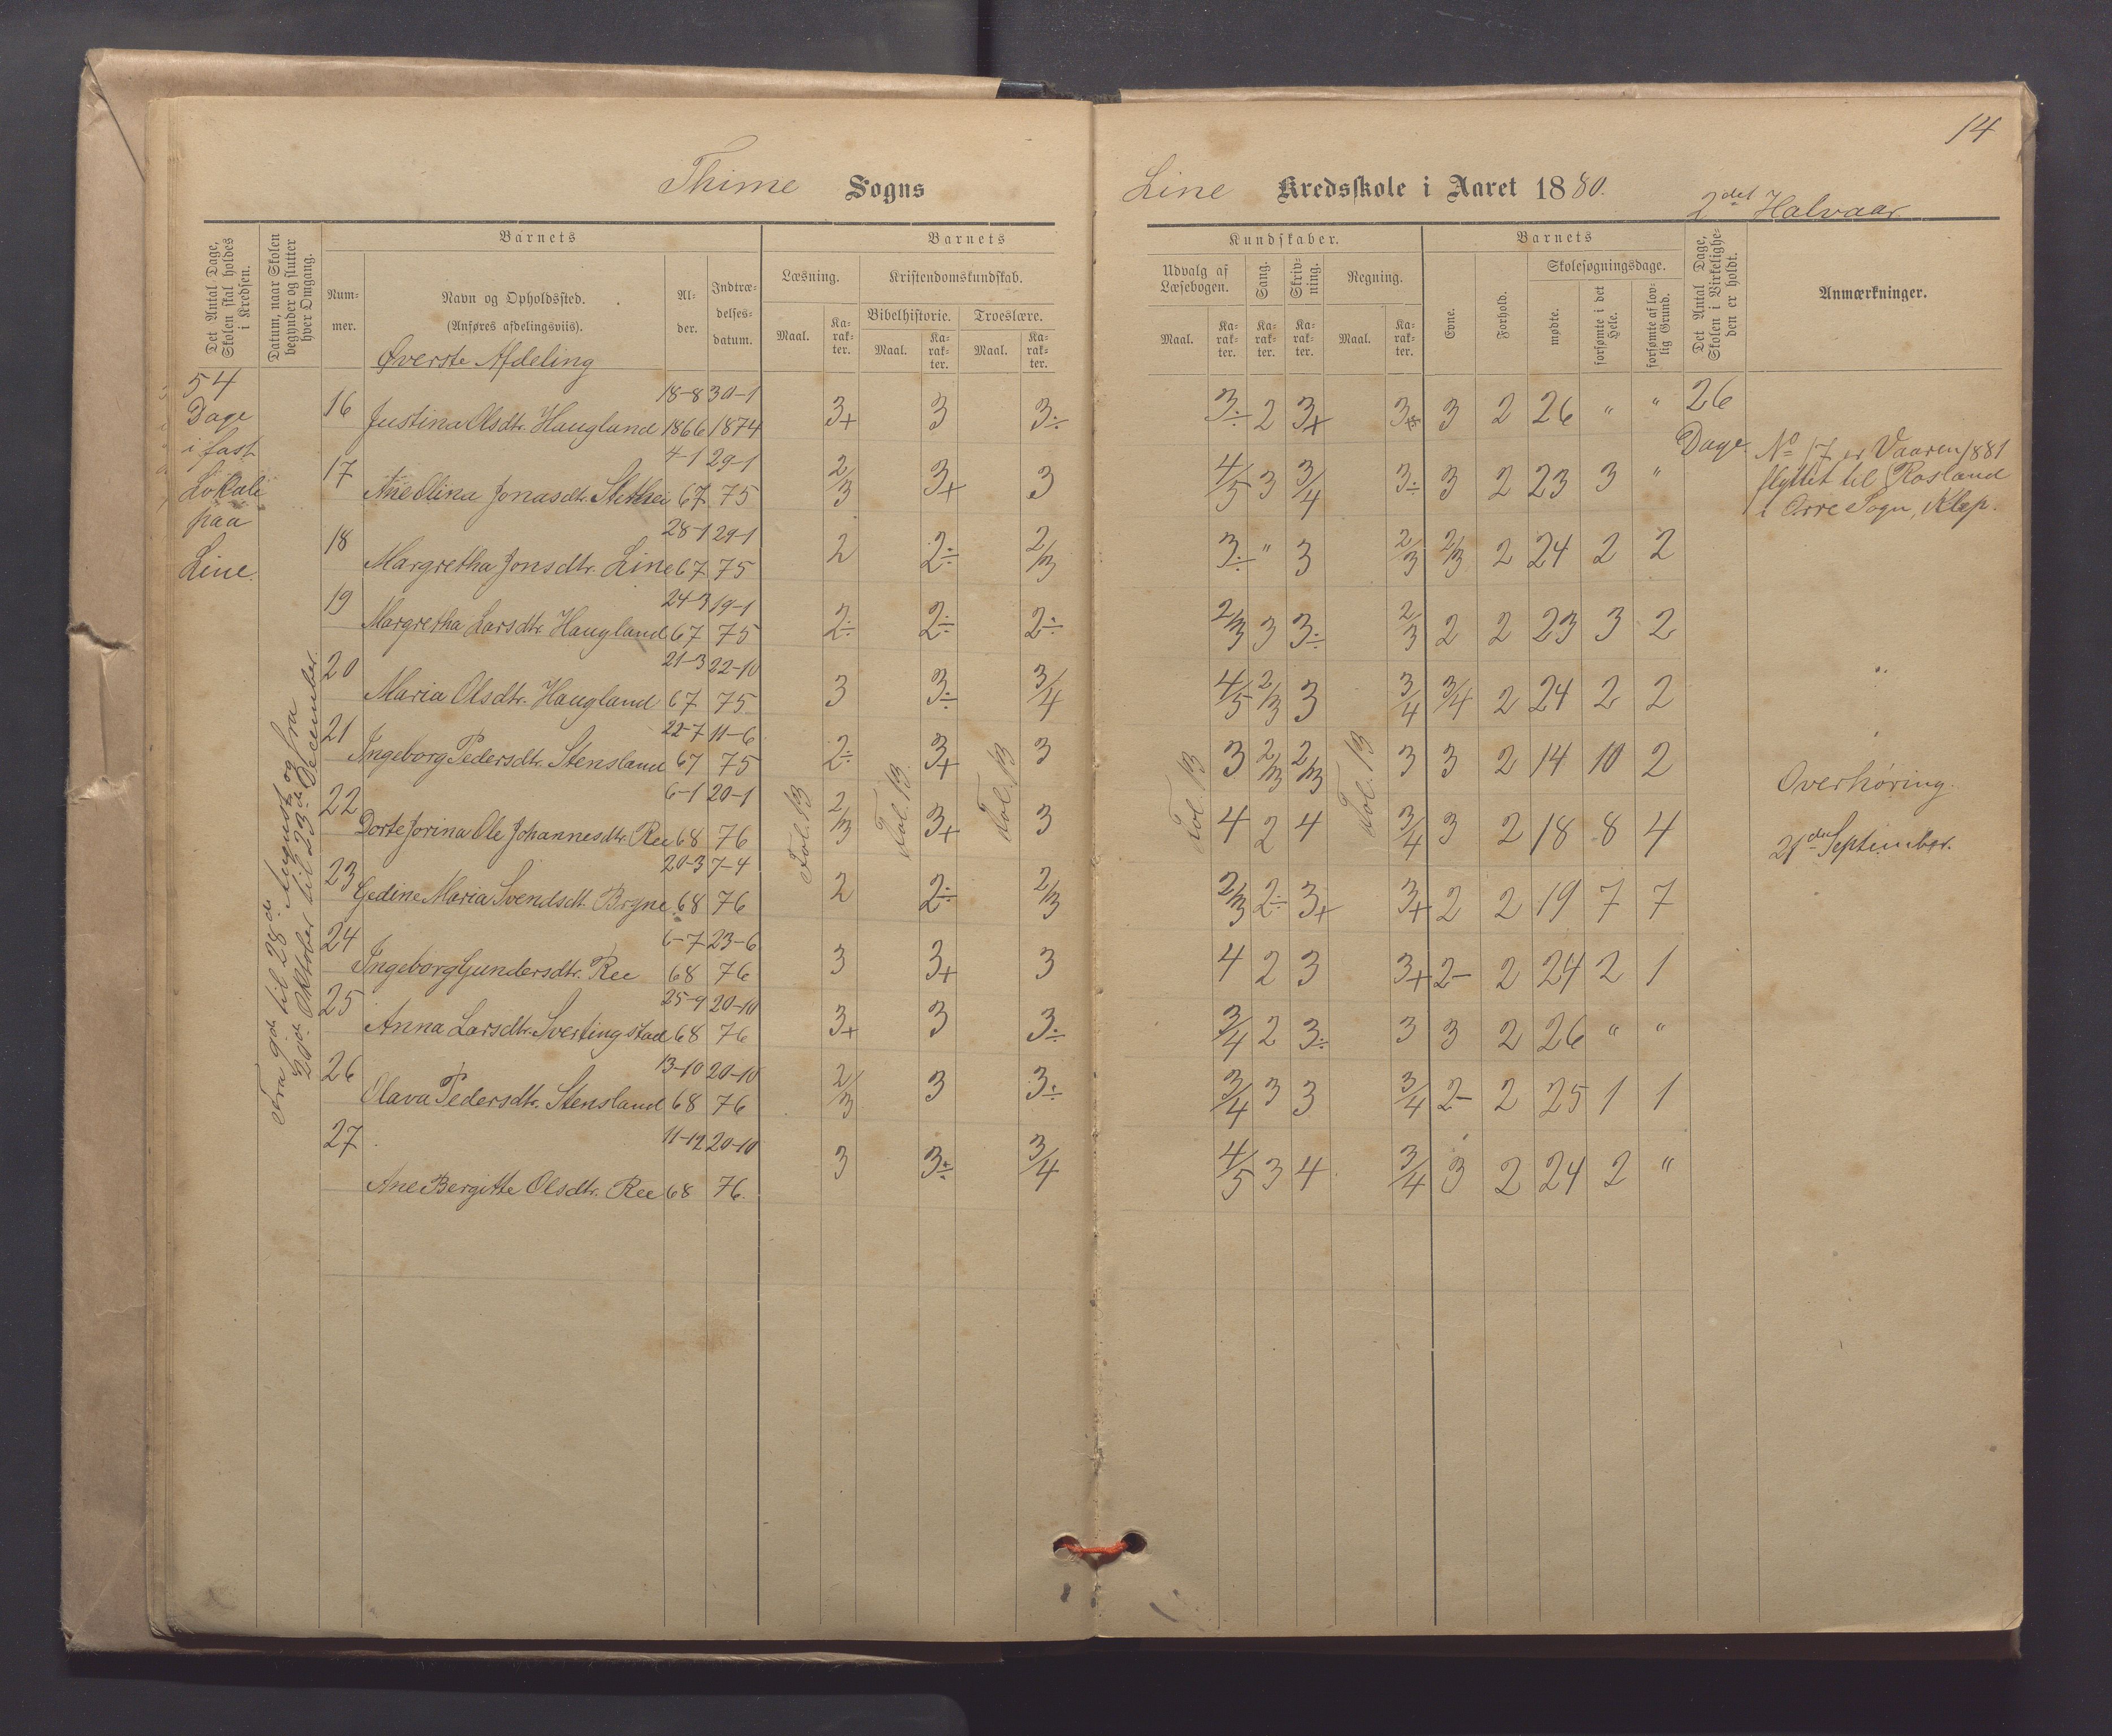 14
Thime Sogns
Line Kredsskole i Aaret 1880.
2det Halvaar
Det Antal Dage, Skolen skal holdes i Kredsen.
Datum, naar Skolen begynder og slutter hver Omgang.
Barnets
Num-
mer.
Navn og Opholdssted.
(Anføres afdelingsviis).
Al-
der.
Indtræ-
delses-
datum.
Barnets
Læsning.
Kristendomskundskab.
Bibelhistorie. Troeslære.
Maal. Ka-rak-ter. Maal. Ka-rak-ter. Maal. Ka-rak-ter.
Kundskaber.
Udvalg af Læsebogen. Sang. Skriv-ning. Regning.
Maal. Ka-rak-ter. Ka-rak-ter. Ka-rak-ter. Maal. Ka-rak-ter.
Barnets
Evne. Forhold.
Skolesøgningsdage.
mødte. forsømte i det Hele. forsømte af lov-lig Grund.
Det Antal Dage, Skolen i Virkelighe-den er holdt.
Anmærkninger.
Øverste Afdeling
54
Dage
i fast
Lokale
paa
Line.
Fra 9de til 28de August og fra
20de Oktober til 23de December.
16 Justina Olsdtr. Haugland 18-8 1866 30-1 1874 3+ 3 3÷ 3÷ 2 3+ 3+ 3 2 26 " " 26 Dage
17 Ane Olina Jonasdtr. 4-1 67 29-1 75 2/3 3+ 3 4/5 3 3/4 3÷ 3 2 23 3 "
No 17 er Vaaren 1881
flyttet til Rosland
i Orre Sogn, Klep.
18 Margretha Jonsdtr. Line 28-1 67 29-1 75 2 2÷ 2/3 3÷ " 3 2/3 2/3 2 24 2 2
19 Margretha Larsdtr. Haugland 24-3 67 19-1 75 2÷ 2÷ 2÷ 2/3 3 3÷ 2/3 2 2 23 3 2
20 Maria Olsdtr. Haugland 21-3 67 22-10 75 3 3÷ 3/4 4/5 2/3 3 3/4 3/4 2 24 2 2
21 Ingeborg Pedersdtr. Stensland 22-7 67 11-6 75 2÷ 3+ 3 3 2/3 2/3 3 3 2 14 10 2
Fol. 13 Fol. 13 Fol. 13 Fol. 13 Fol. 13
Overhøring
21de September.
22 Dorte Jorina Ole Johannesdtr. Ree 6-1 68 20-1 76 2/3 3+ 3 4 2 4 3/4 3 2 18 8 4
23 Gedine Maria Svendsdt. Bryne 20-3 68 7-4 76 2 2÷ 2/3 2/3 2÷ 3+ 3+ 2 2 19 7 7
24 Ingeborg Gundersdtr. Ree 6-7 68 23-6 76 3 3+ 3 4 2 3 3+ 2- 2 24 2 1
25 Anna Larsdtr. Svertingstad 25-9 68 20-10 76 3+ 3 3÷ 3/4 2 3÷ 3 3 2 26 " "
26 Olava Pedersdtr. Stensland 13-10 68 20-10 76 2/3 3 3÷ 3/4 3 3 3/4 2- 2 25 1 1
27 Ane Bergitte Olsdtr. Ree 11-12 68 20-10 76. 3 3÷ 3/4 4/5 3 4 3/4 3 2 24 2 "